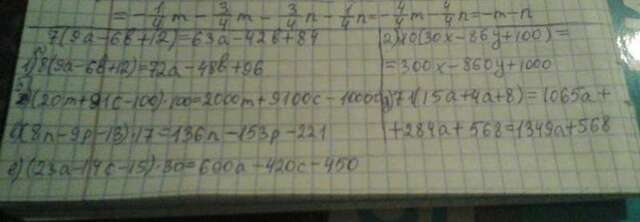 = -1/4m - 3/4m - 3/4n - 1/4n = -4/4m - 4/4n = -m-n
7(9a-6b+12)=63a-42b+84
1) 8(9a-6b+12)=72a-48b+96
(20m+91c-100)·100=2000m+9100c-10000
(8n-9p-13)·17=136n-153p-221
e) (23a-14c-15)·30=690a-420c-450
2) 10(30x-86y+100)=
=300x-860y+1000
71(15a+4a+8)=1065a+
+284a+568=1349a+568